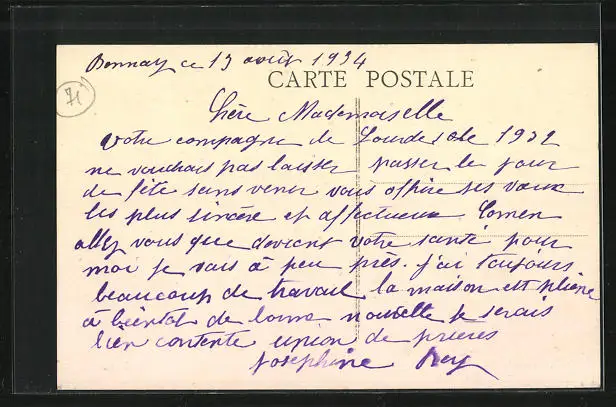 Bonnay ce 13 août 1934
CARTE POSTALE
71
Chère Mademoiselle
votre compagne de Lourdes de 1932
ne voudrais pas laisser passer le jour
de fête sans venir vous offrire ses vœux
les plus sincère et affectueux Comen
allez vous que devient votre santé pour
moi je vais à peu près. j'ai toujours
beaucoup de travail la maison est pleine
à bientôt de bonne nouvelle je serais
bien contente union de prières
Joséphine Rey